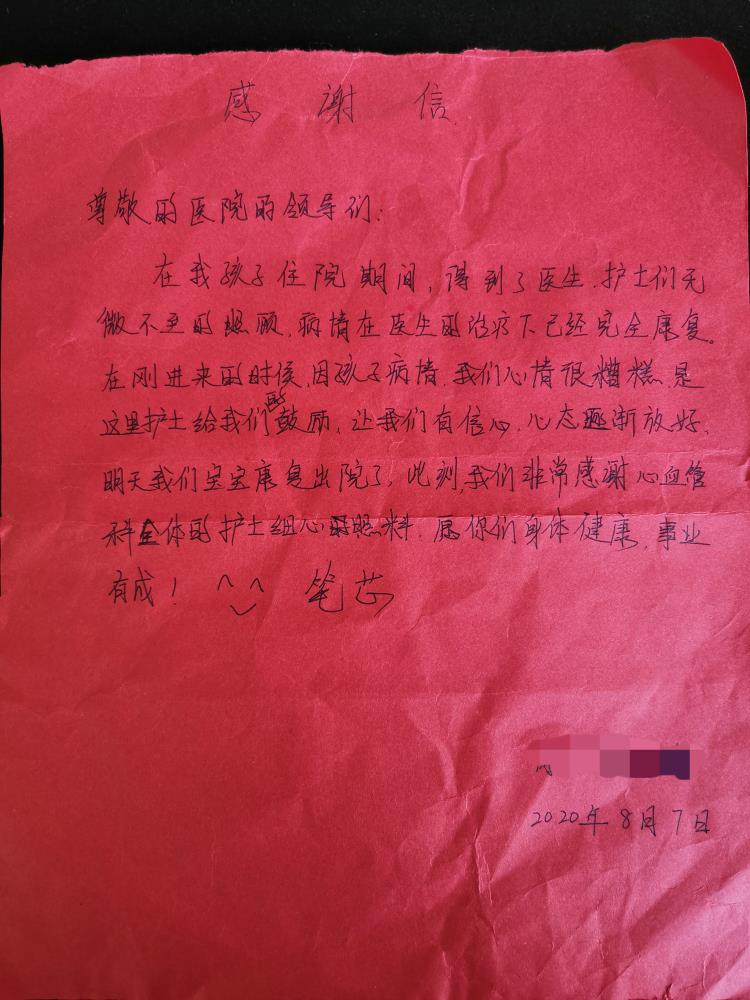 感谢信
尊敬的医院的领导们:
在我孩子住院期间,得到了医生.护士们无
微不至的照顾.病情在医生的治疗下已经完全康复。
在刚进来的时候,因孩子病情,我们心情很糟糕.是
这里护士给我们的鼓励,让我们有信心,心态逐渐放好.
明天我们宝宝康复出院了,此刻,我们非常感谢心血管
科全体的护士细心的照料.愿你们身体健康,事业
有成! ^‿^ 笔芯
2020年8月7日